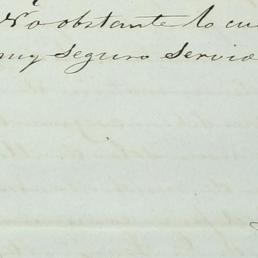 No obstante lo cu
muy seguro servid